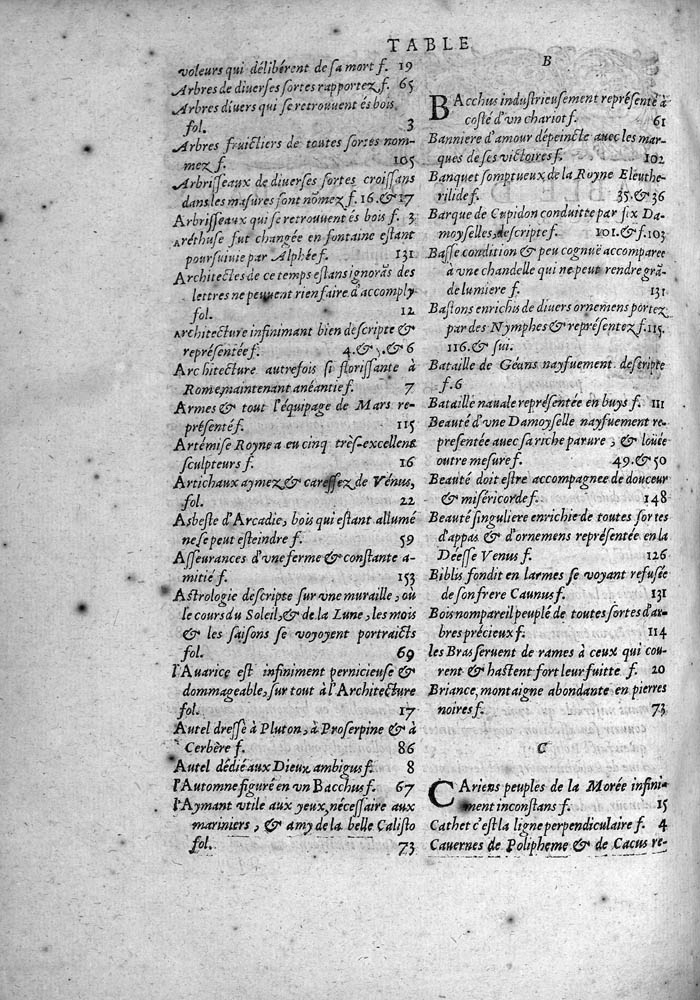 TABLE
voleurs qui délibérent de sa mort f. 19
Arbres de diverses sortes rapportez f. 65
Arbres divers qui se retrouvent és bois,
fol. 3
Arbres fruictiers de toutes sortes nom-
mez f. 105
Arbrisseaux de diverses sortes croissans
dans les masures sont nõmez f. 16. & 17
Arbrisseaux qui se retrouvent és bois f. 3
Aréthuse fut changée en fontaine estant
poursuivie par Alphée f. 131
Architectes de ce temps estans ignorãs des
lettres ne peuvent rien faire d'accomply
fol. 12
Architecture infinimant bien descripte &
représentée f. 4. & 5. & 6
Architecture autrefois si florissante à
Rome maintenant anéantie f. 7
Armes & tout l'équipage de Mars re-
présenté f. 115
Artémise Royne a eu cinq très-excellens
sculpteurs f. 16
Artichaux aymez & caressez de Vénus,
fol. 22
Asbeste d'Arcadie, bois qui estant allumé
ne se peut esteindre f. 59
Asseurances d'vne ferme & constante a-
mitié f. 153
Astrologie descripte sur vne muraille, où
le cours du Soleil, & de la Lune, les mois
& les saisons se voyoyent portraicts
fol. 69
l'Auarice est infiniment pernicieuse &
dommageable, sur tout à l'Architecture
fol. 17
Autel dressé à Pluton, à Proserpine & à
Cerbère f. 86
Autel dédié aux Dieux ambigus f. 8
l'Automne figuré en vn Bacchus f. 67
l'Aymant vtile aux yeux, nécessaire aux
mariniers, & amy de la belle Calisto
fol. 73
B
BAcchus industrieusement représenté à
costé d'vn chariot f. 61
Banniere d'amour dépeincte avec les mar-
ques de ses victoires f. 102
Banquet somptueux de la Royne Eleuthe-
rilide f. 35. & 36
Barque de Cupidon conduitte par six Da-
moyselles, descripte f. 101. & f. 103
Basse condition & peu cognuë accomparee
à vne chandelle qui ne peut rendre grã-
de lumiere f. 131
Bastons enrichis de divers ornemens portez
par des Nymphes & représentez f. 115.
116. & sui.
Bataille de Géans nayfuement descripte
f. 6
Bataille nauale représentée en buys f. 111
Beauté d'vne Damoyselle nayfuement re-
presentée avec sa riche parure, & loüée
outre mesure f. 49. & 50
Beauté doit estre accompagnee de douceur
& miséricorde f. 148
Beauté singuliere enrichie de toutes sortes
d'appas & d'ornemens représentée en la
Déesse Venus f. 126
Biblis fondit en larmes se voyant refusée
de son frere Caunus f. 131
Bois nompareil peuplé de toutes sortes d'ar-
bres précieux f. 114
les Bras seruent de rames à ceux qui cou-
rent & hastent fort leur fuitte f. 20
Briance, montaigne abondante en pierres
noires f. 73
C
CAriens peuples de la Morée infini-
ment inconstans f. 15
Cathet c'est la ligne perpendiculaire f. 4
Cauernes de Polipheme & de Cacus re-